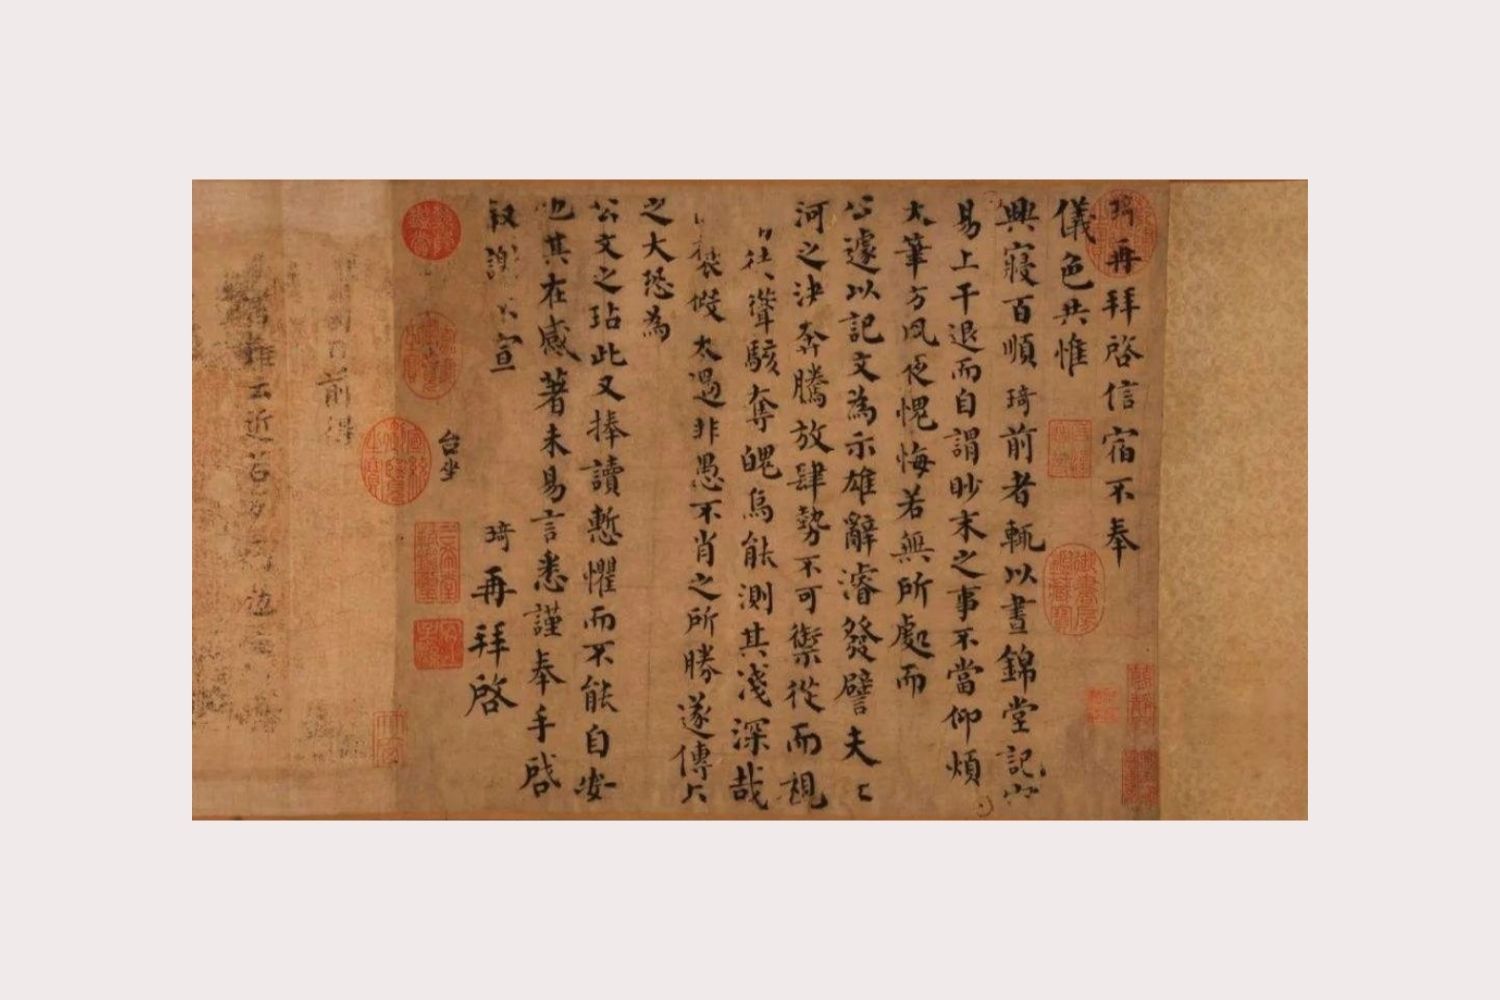 琦再拜啓信宿不奉
儀色共惟
興寢百順琦前者輒以晝錦堂記
易上干退而自謂眇末之事不當仰煩
大筆方夙夜愧悔若無所處而
公遽以記文為示雄辭濬發譬夫
河之決奔騰放肆勢不可禦從而視
徒聳駭奪魄烏能測其淺深哉
褒假太過非愚不肖之所勝遂傳
之大恐為
公文之玷此又捧讀慙懼而不能自安
也其在感著未易言悉謹奉手啓
叙謝不宣 琦再拜啓
台坐
前得
云近若